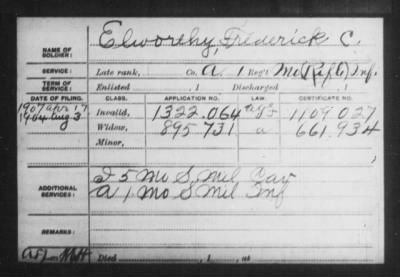 NAME OF SOLDIER: Elworthy, Frederick C.
SERVICE: Late rank, Co. A. 1 Reg't Mo (Rifle) Inf.
TERM OF SERVICE: Enlisted , 1 Discharged , 1
DATE OF FILING. CLASS. APPLICATION NO. LAW. CERTIFICATE NO.
1907 Apr 17 Invalid, 1322.064 1109.027
1904 Aug 3 Widow, 895731 a 661.934
Minor,
ADDITIONAL SERVICES: I 5 Mo S. Mil Cav
A 1 Mo S Mil Inf
REMARKS:
Died , 1 , at